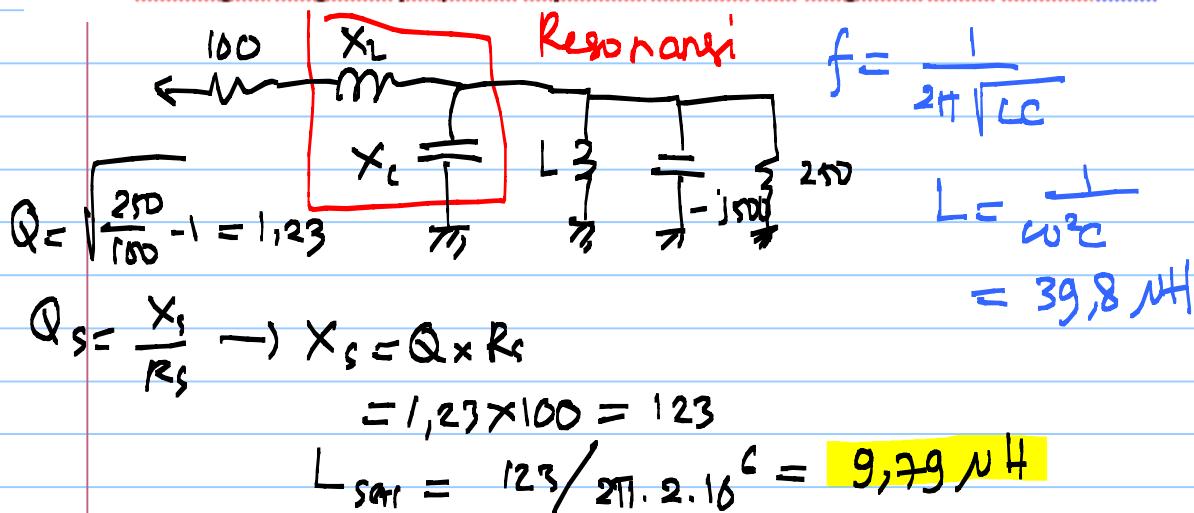 100 X_L Resonansi
f = 1 / 2π√LC
X_C L -j500 250
Q = √(250/100 - 1) = 1,23
L = 1 / ω²C
= 39,8 μH
Q_S = X_S / R_S → X_S = Q × R_S
= 1,23 × 100 = 123
L seri = 123 / 2π. 2. 10^6 = 9,79 μH